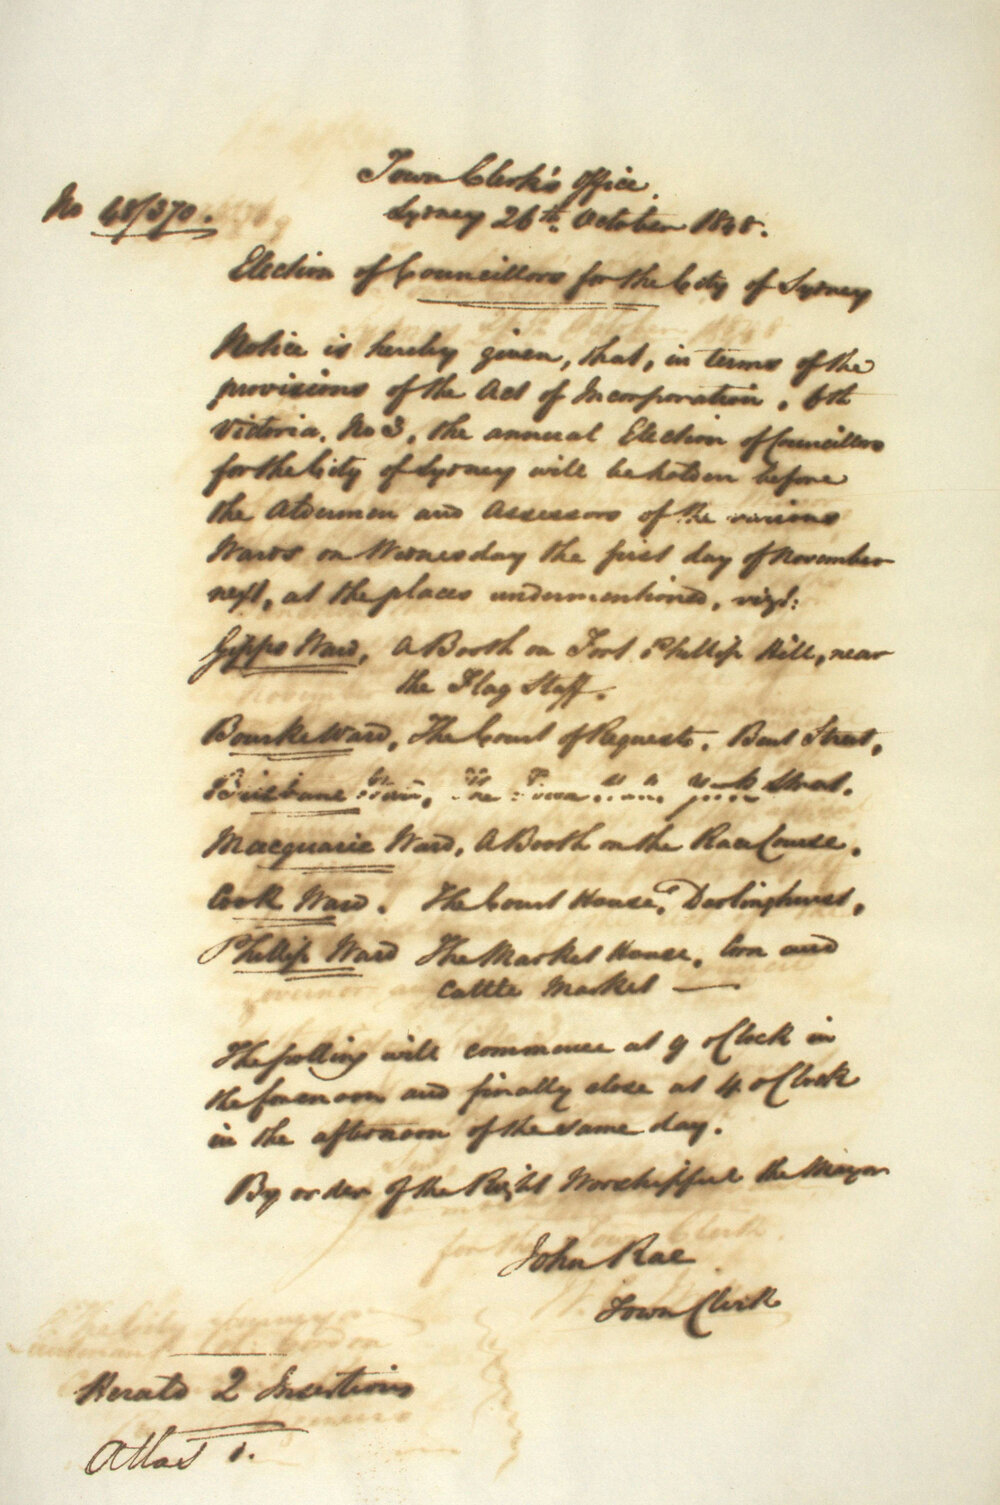 Town Clerk's Office.
No 48/370.
Sydney 26th. October 1848.
Election of Councillors for the City of Sydney
Notice is hereby given, that, in terms of the
provisions of the Act of Incorporation, 6th
Victoria, No 3, the annual Election of Councillors
for the City of Sydney will be holden before
the Aldermen and Assessors of the various
Wards on Wednesday the first day of November
next, at the places undermentioned, vizt:
Gipps Ward, A Booth on Fort Phillip Hill, near
the Flag Staff.
Bourke Ward, The Court of Requests, Bent Street,
Brisbane Ward, The Town Hall York Street.
Macquarie Ward, A Booth on the Race Course,
Cook Ward. The Court House, Darlinghurst,
Phillip Ward The Market House, Corn and
Cattle Market —
The polling will commence at 9 oClock in
the forenoon and finally close at 4 oClock
in the afternoon of the same day.
By order of the Right Worshipful the Mayor
John Rae
Town Clerk
Herald 2 Insertions
Atlas 1.